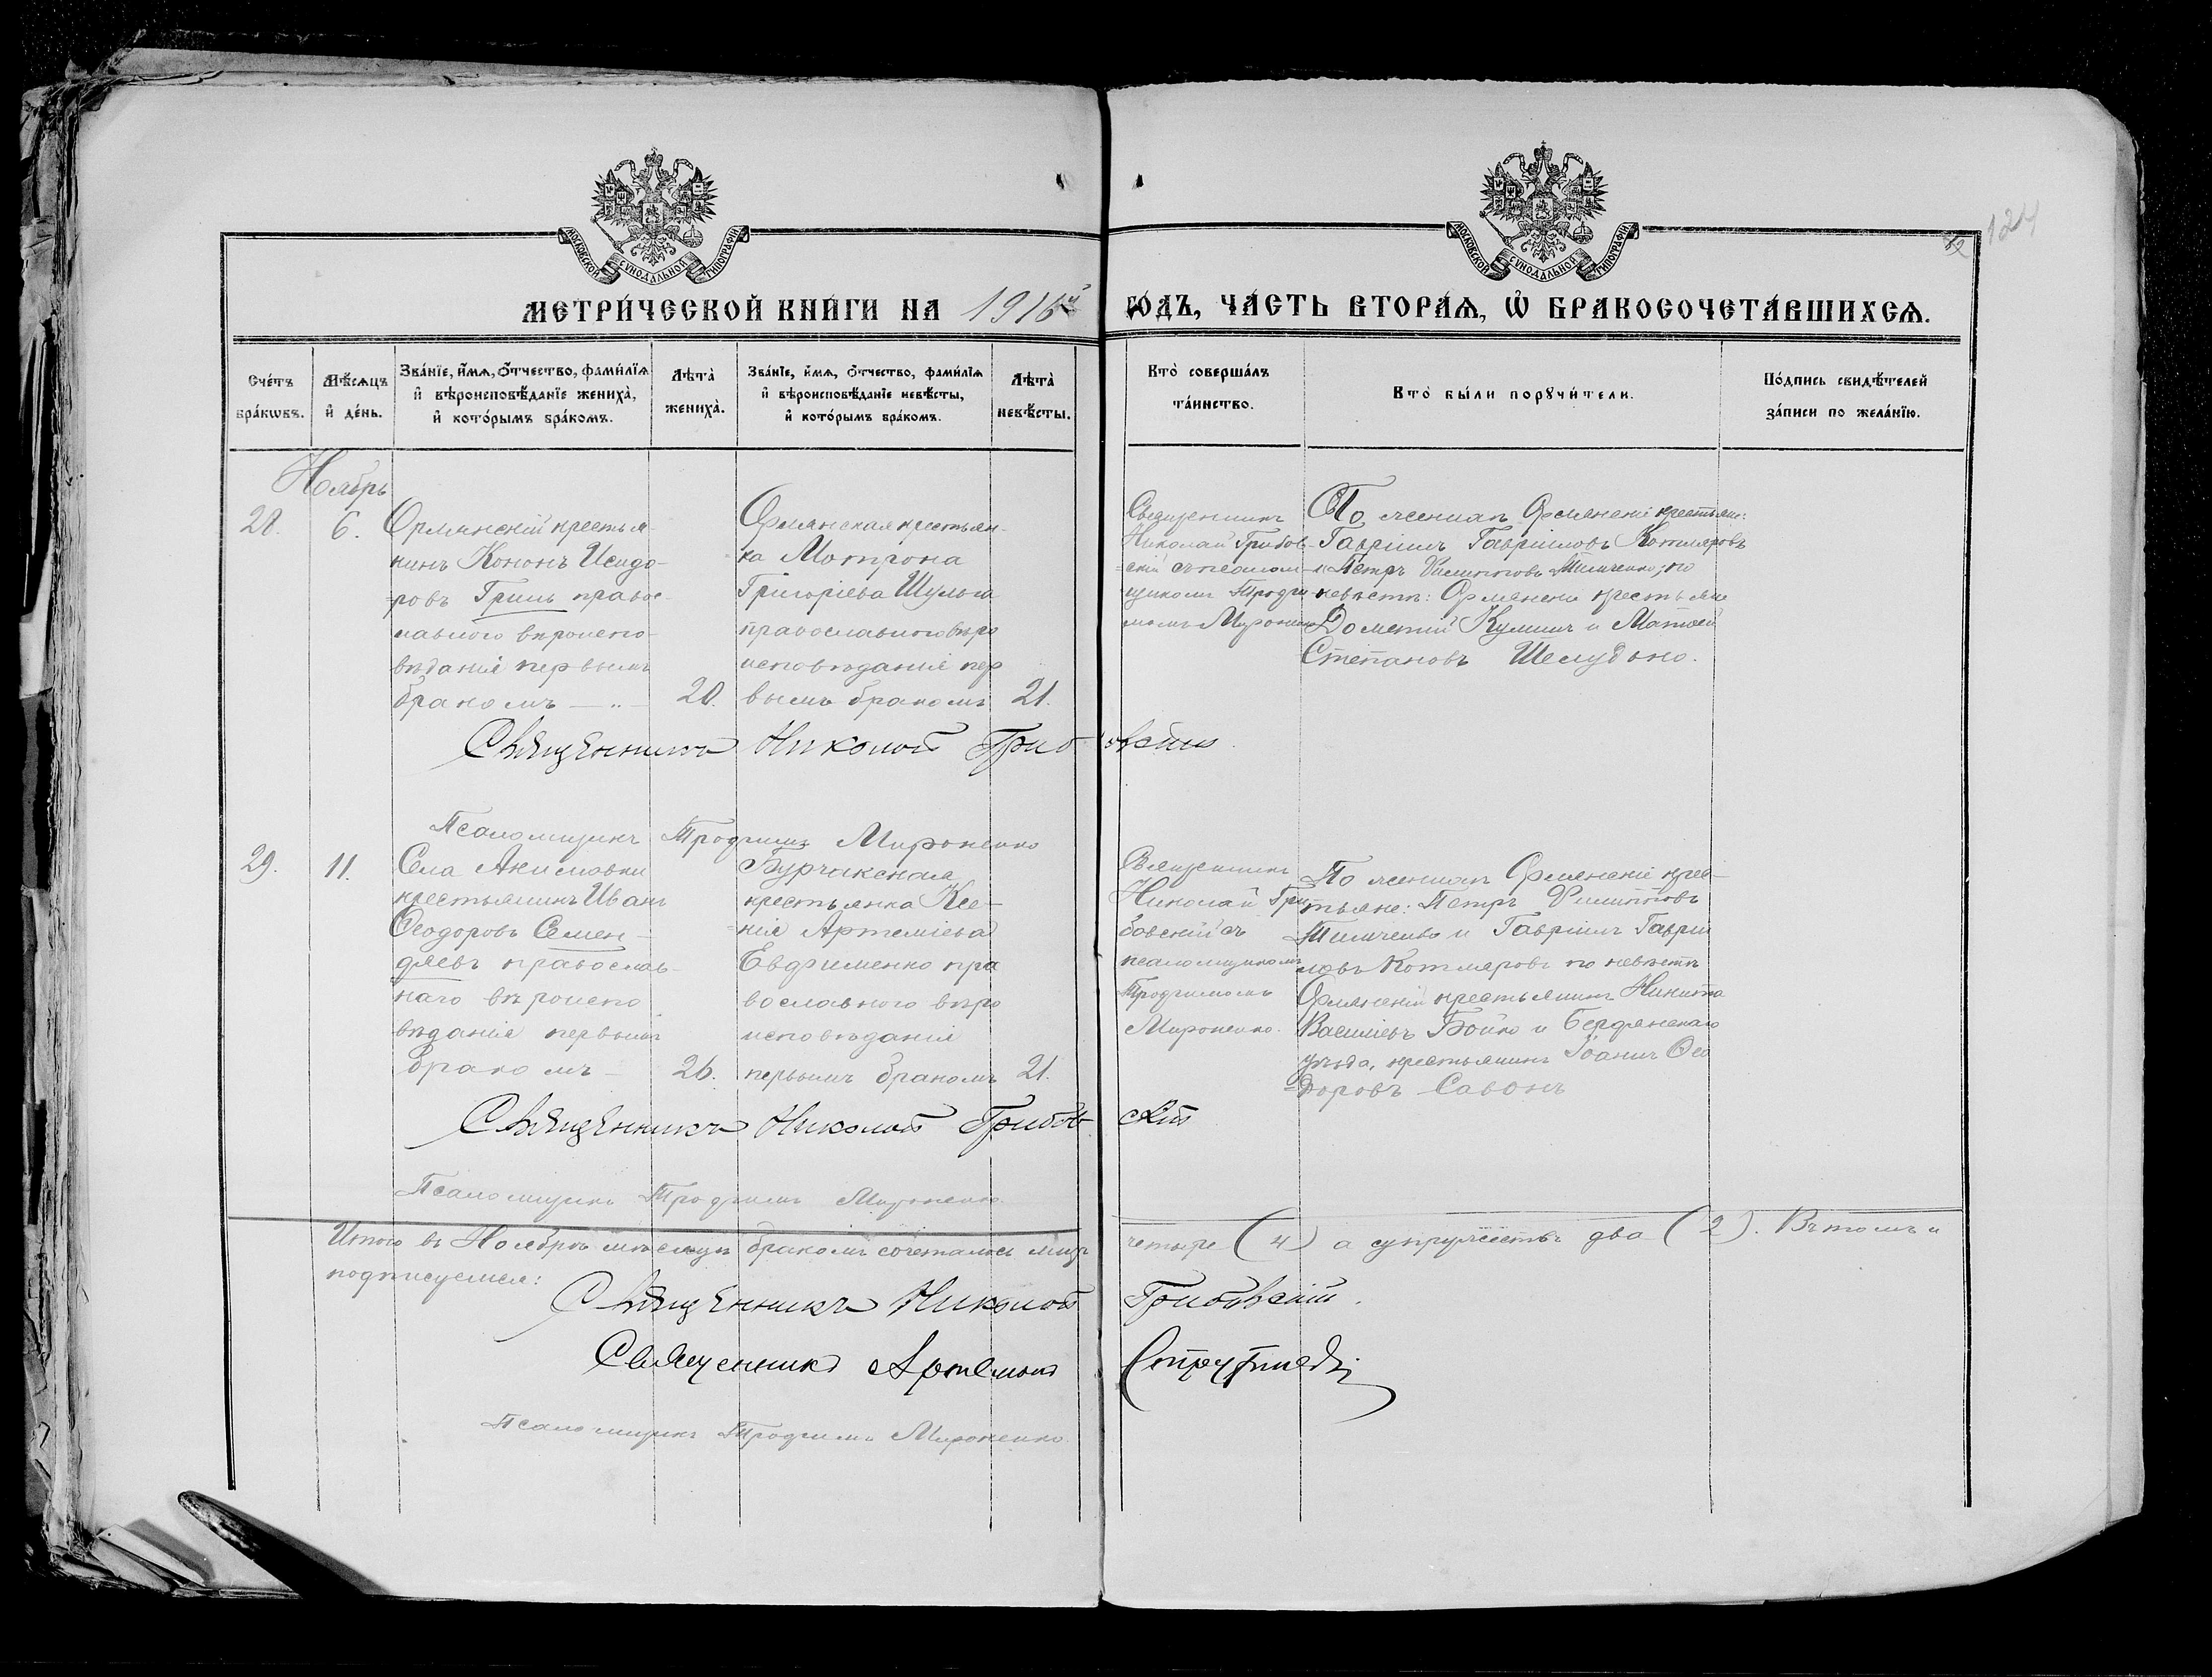 МОСКОВСКОЙ СѴНОДАЛЬНОЙ ТИПОГРАФІИ
МОСКОВСКОЙ СѴНОДАЛЬНОЙ ТИПОГРАФІИ
124
МЕТРИ́ЧЕСКОЙ КНИ́ГИ НА 1916й ГО́ДЪ, ЧА́СТЬ ВТОРА́Ѧ, Ѽ БРАКОСОЧЕТА́ВШИХСѦ.
Сче́тъ бра́кѡвъ.
Мѣ́сѧцъ и҆ де́нь.
Зва́нїе, и҆́мѧ, о҆́тчество, фами́лїѧ и҆ вѣроисповѣ́данїе жениха̀, и҆ кото́рымъ бра́комъ.
Лѣта̀ жениха̀.
Зва́нїе, и҆́мѧ, о҆́тчество, фами́лїѧ и҆ вѣроисповѣ́данїе невѣ́сты, и҆ кото́рымъ бра́комъ.
Лѣта̀ невѣ́сты.
Кто̀ соверша́лъ та́инство.
Кто̀ бы́ли порꙋчи́тели.
По́дпись свидѣ́телей за́писи по жела́нїю.
Ноябрь
28.
6.
Орлянскій крестья-
нинъ Кононъ Исидо-
ровъ Гриль правос-
лавнаго вѣроиспо-
вѣданія первымъ
бракомъ — „ —
20.
Орлянская крестьян-
ка Мотрона
Григоріева Шульга
православнаго вѣро
исповѣданія пер
вымъ бракомъ
21.
Священникъ
Николай Грибов-
скій съ псалом-
щикомъ Трофи-
момъ Мироненко
По женихѣ Орлянскіе крестьяне:
Гавріилъ Гавріиловъ Котляровъ
и Петръ Филипповъ Тимченко; по
невѣстѣ: Орлянскіе крестьяне
Дометій и Матѳей
Степановъ Шелудько.
Священникъ Николай Грибовскій
Псаломщикъ Трофимъ Мироненко
29.
11.
Села Акимовки
крестьянинъ Иванъ
Ѳеодоровъ Семен-
дяевъ православ-
наго вѣроиспо
вѣданія первымъ
бракомъ —
26.
Бурчакская
крестьянка Ксе-
нія Артеміева
Евфименко пра
вославнаго вѣро
исповѣданія
первымъ бракомъ
21.
Священникъ
Николай Гри
бовскій съ
псаломщикомъ
Трофимомъ
Мироненко.
По женихѣ Орлянскіе крес-
тьяне: Петръ Филипповъ
Тимченко и Гавріилъ Гаврии
ловъ Котляровъ по невѣстѣ
Орлянскій крестьянинъ Никита
Василіевъ Бойко и Бердянскаго
уѣзда, крестьянинъ Іоаннъ Ѳео
доровъ Савонъ
Священникъ Николай Грибовскій
Псаломщикъ Трофимъ Мироненко.
Итого въ Ноябрѣ мѣсяцѣ бракомъ сочеталось лицъ четыре (4) а супружествъ два (2). Въ томъ и
подписуемся:
Священникъ Николай Грибовскій.
Священникъ Артемонъ
Псаломщикъ Трофимъ Мироненко